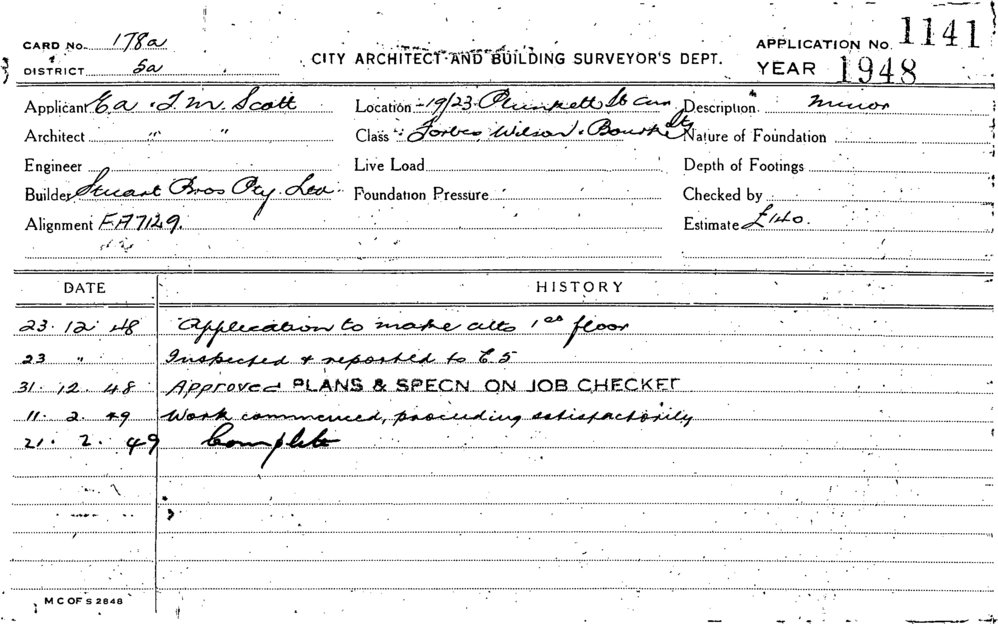 CARD No. 178a
DISTRICT 5a
CITY ARCHITECT AND BUILDING SURVEYOR'S DEPT.
APPLICATION No. 1141
YEAR 1948
Applicant Ea. T. M. Scott Location 19/23 Plunkett St Cnr Description minor
Architect " " Class Forbes, Wilson, Bourke Sts Nature of Foundation
Engineer Live Load Depth of Footings
Builder Stuart Bros Pty. Ltd Foundation Pressure Checked by
Alignment FA7129. Estimate £140.
DATE HISTORY
23. 12. 48 Application to make alts 1st floor
23 " Inspected & reported to C.S
31. 12. 48 Approved PLANS & SPECN ON JOB CHECKED
11. 2. 49 Work commenced, proceeding satisfactorily
21. 2. 49 Complete
M C OF S 2848